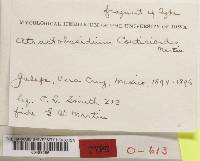 fragment of Type
MYCOLOGICAL HERBARIUM OF THE UNIVERSITY OF IOWA
Atractobasidium Corticioides
Martin
Jalapa, Vera Cruz, Mexico 1894-1896
leg. C. L. Smith, 213
fide G. W. Martin
TYPE
O-613